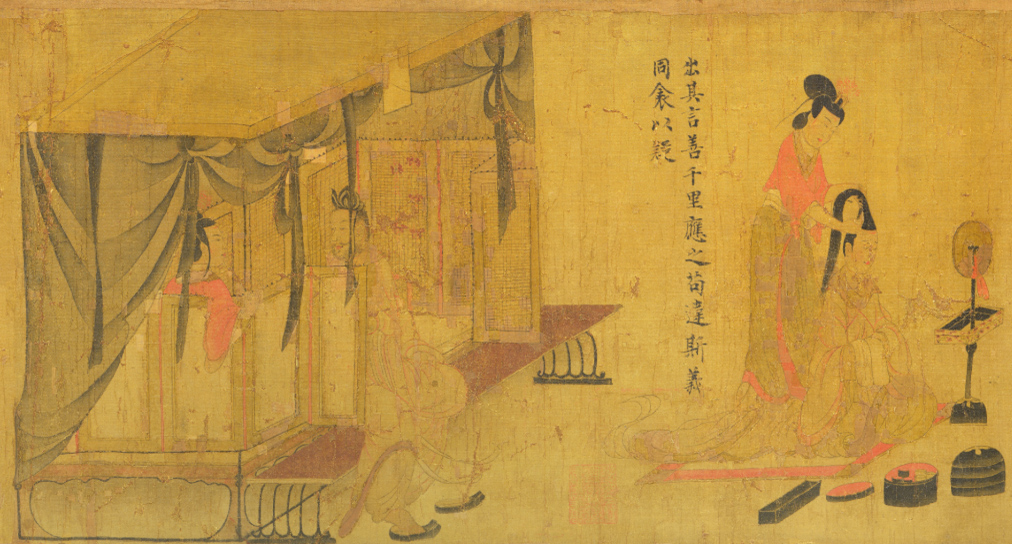 出其言善千里應之苟違斯義
同衾以疑